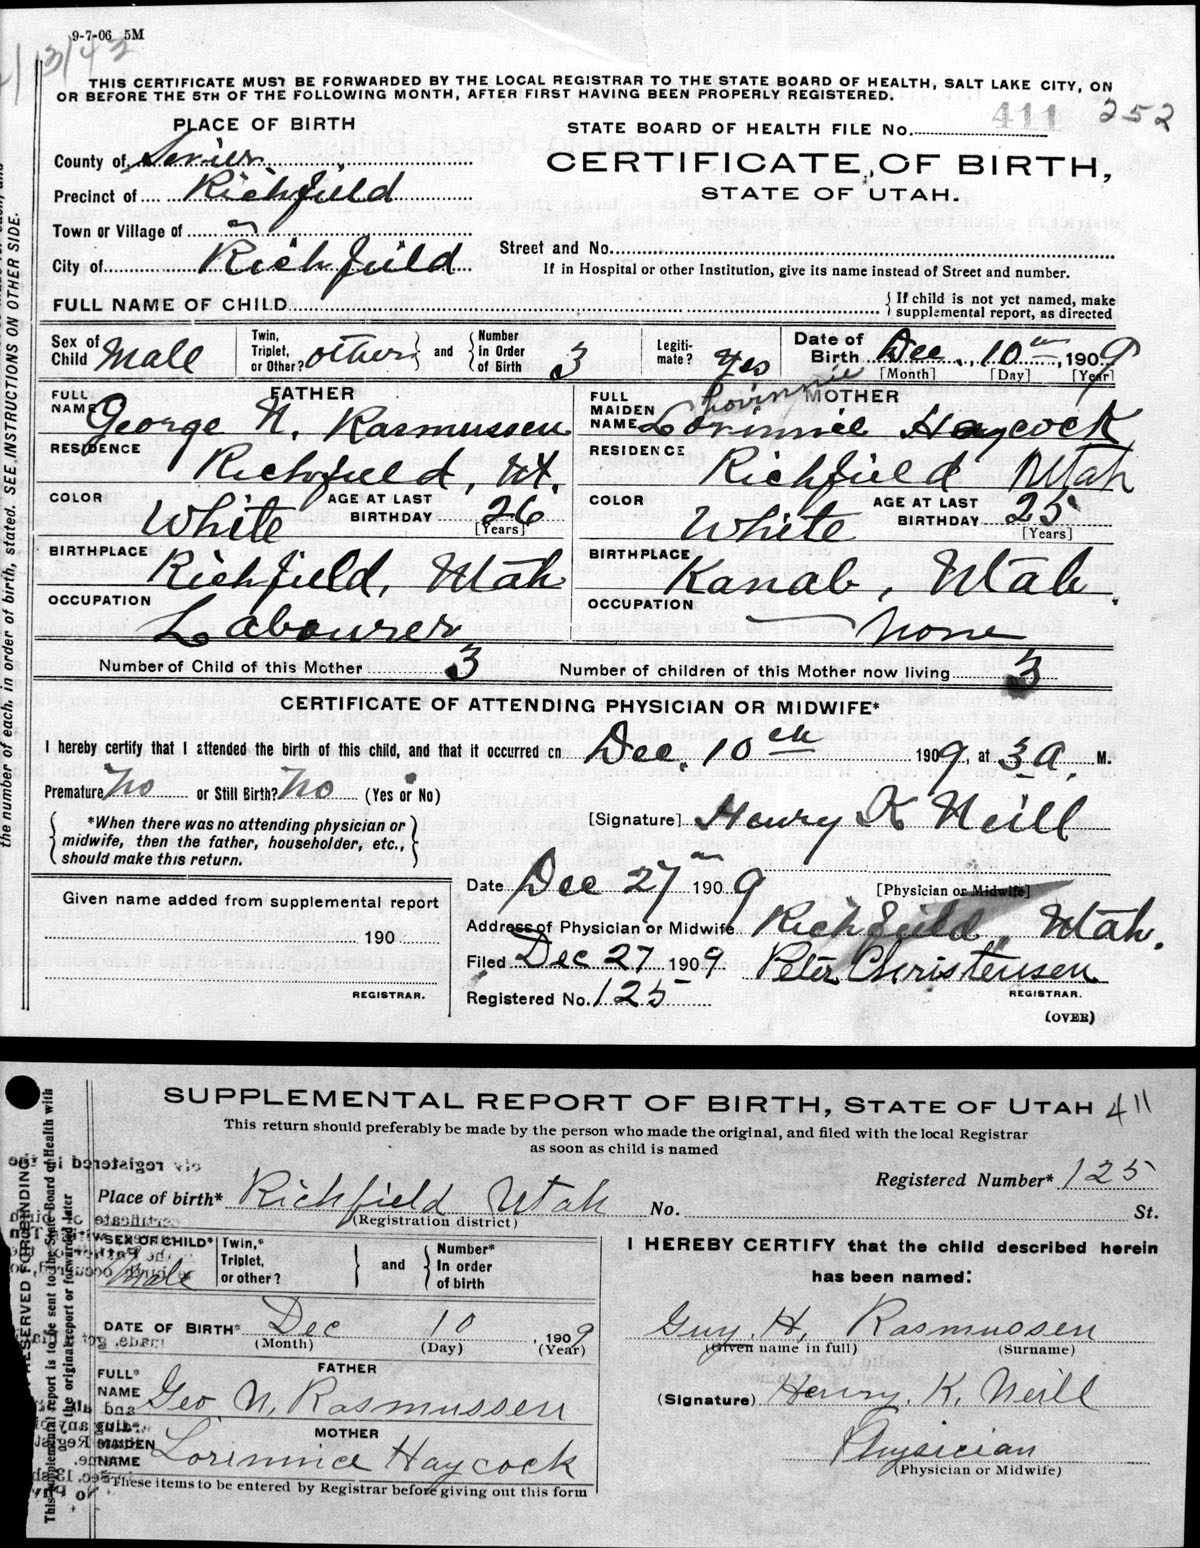 9-7-06 5M
THIS CERTIFICATE MUST BE FORWARDED BY THE LOCAL REGISTRAR TO THE STATE BOARD OF HEALTH, SALT LAKE CITY, ON
OR BEFORE THE 5TH OF THE FOLLOWING MONTH, AFTER FIRST HAVING BEEN PROPERLY REGISTERED.
PLACE OF BIRTH
STATE BOARD OF HEALTH FILE No. 411 252
County of Sevier
CERTIFICATE OF BIRTH,
STATE OF UTAH.
Precinct of Richfield
Town or Village of
City of Richfield
Street and No.
If in Hospital or other Institution, give its name instead of Street and number.
FULL NAME OF CHILD
{ If child is not yet named, make
supplemental report, as directed
Sex of Child Male
Twin, Triplet, or Other? other } and { Number In Order of Birth 3
Legiti-mate? Yes
Date of Birth Dec. 10th 1909
[Month] [Day] [Year]
FATHER
FULL NAME George N. Rasmussen
RESIDENCE Richfield, Ut.
COLOR White
AGE AT LAST BIRTHDAY 26 [Years]
BIRTHPLACE Richfield, Utah
OCCUPATION Labourer
MOTHER
Lovinnie
FULL MAIDEN NAME Lorinnie Haycock
RESIDENCE Richfield Utah
COLOR White
AGE AT LAST BIRTHDAY 25 [Years]
BIRTHPLACE Kanab, Utah.
OCCUPATION None
Number of Child of this Mother 3
Number of children of this Mother now living 3
CERTIFICATE OF ATTENDING PHYSICIAN OR MIDWIFE*
I hereby certify that I attended the birth of this child, and that it occurred on Dec. 10th 1909, at 3 a. M.
Premature No or Still Birth? No (Yes or No)
{ *When there was no attending physician or
midwife, then the father, householder, etc.,
should make this return. }
[Signature] Henry K Neill
[Physician or Midwife]
Date Dec 27 1909
Address of Physician or Midwife Richfield, Utah.
Filed Dec 27 1909 Peter Christensen
REGISTRAR.
Registered No. 125
(OVER)
Given name added from supplemental report
190
REGISTRAR.
the number of each, in order of birth, stated. SEE INSTRUCTIONS ON OTHER SIDE.
SUPPLEMENTAL REPORT OF BIRTH, STATE OF UTAH 411
This return should preferably be made by the person who made the original, and filed with the local Registrar
as soon as child is named
Registered Number* 125
Place of birth* Richfield Utah No. St.
(Registration district)
SEX OF CHILD* Male
Twin,* Triplet, or other? } and { Number* In order of birth
DATE OF BIRTH* Dec 10, 1909
(Month) (Day) (Year)
FATHER
FULL* NAME Geo N. Rasmussen
MOTHER
MAIDEN NAME Lorinnie Haycock
*These items to be entered by Registrar before giving out this form
I HEREBY CERTIFY that the child described herein
has been named:
Guy. H. Rasmussen
(Given name in full) (Surname)
(Signature) Henry. K. Neill
Physician
(Physician or Midwife)
RESERVED FOR BINDING.
This supplemental report is to be sent to the State Board of Health with
the original report or forwarded later